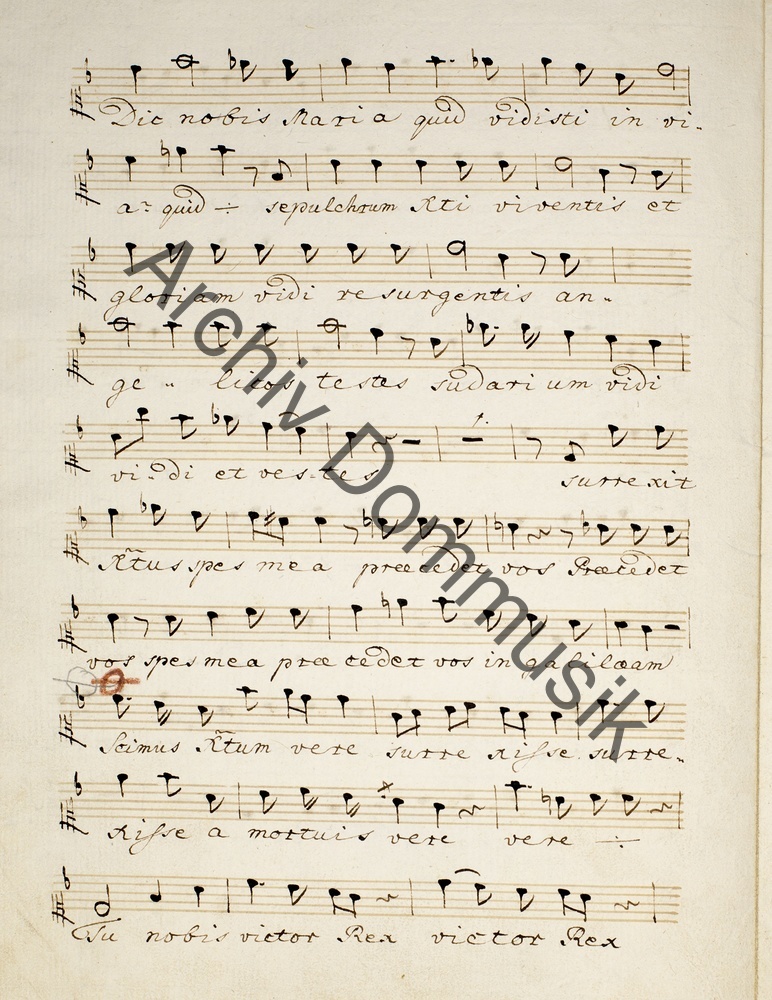 Dic nobis Maria quid vidisti in vi-
a? quid ÷ sepulchrum Xti viventis et
gloriam vidi resurgentis an-
ge - licos testes sudarium vidi
vi-di et ves-tes surrexit
Xtus spes mea præcedet vos Præcedet
vos spes mea præcedet vos in galilæam
Scimus Xtum vere surrexisse surre-
xisse a mortuis vere vere ÷
Tu nobis victor Rex victor Rex
Archiv Dommusik